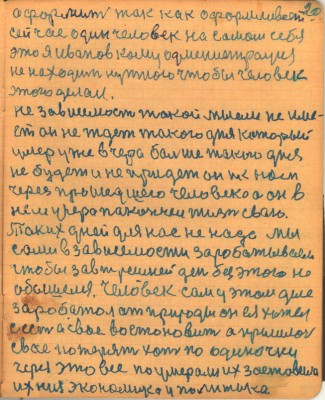 20
оформит так как оформлевает
сейчас один человек на самом себя
это я Иванов кому администрация
не находит нужного чтобы человек
этого делал.
не зависемост такой мисле не име-
ет он не ждет такого дня который
умер уже вчера балше такого дня
не будет и не придет он к нам
через прошедщего человека а он в
нем умер
Таких дней для нас не надо мы
сами в зависемости заробатываем
чтобы завтрешней ден без этого не
обошелся, человек сам у этом дне
заробатол от природы он ел
свае востоновит а прошлое
свае потерят хот по одиночку
через это все поумерали их заставела
их ния экономика и политика